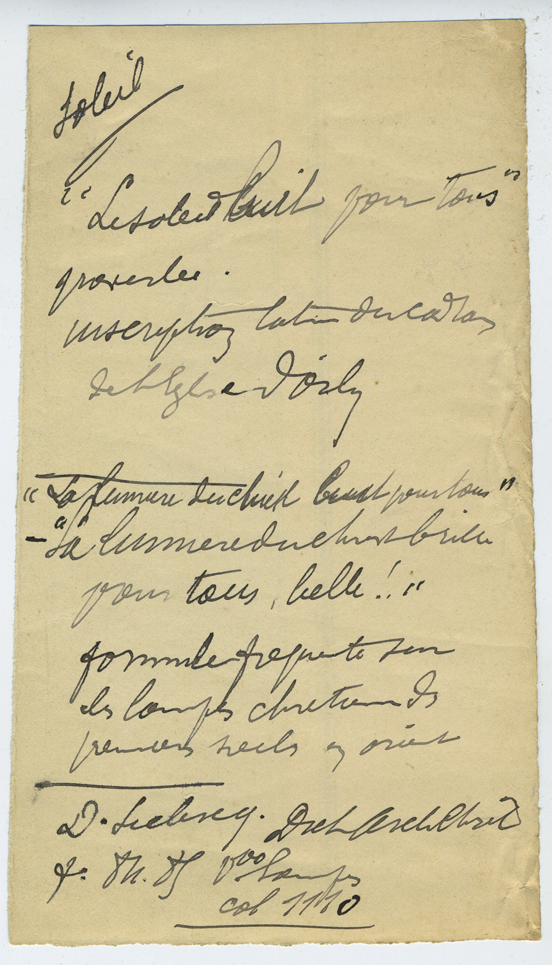 Soleil
"Le soleil luit pour tous"
proverbe.
inscription latine du cadran
de l'Eglise d'Orly
"La lumière du christ luit pour tous"
- "La lumière du christ brille
pour tous, belle!"
formule frequente sur
les lampes chretiennes des
premiers siecles en orient
D. Leclercq. Dict Arch Chret
f. vo Lampes
col 1110